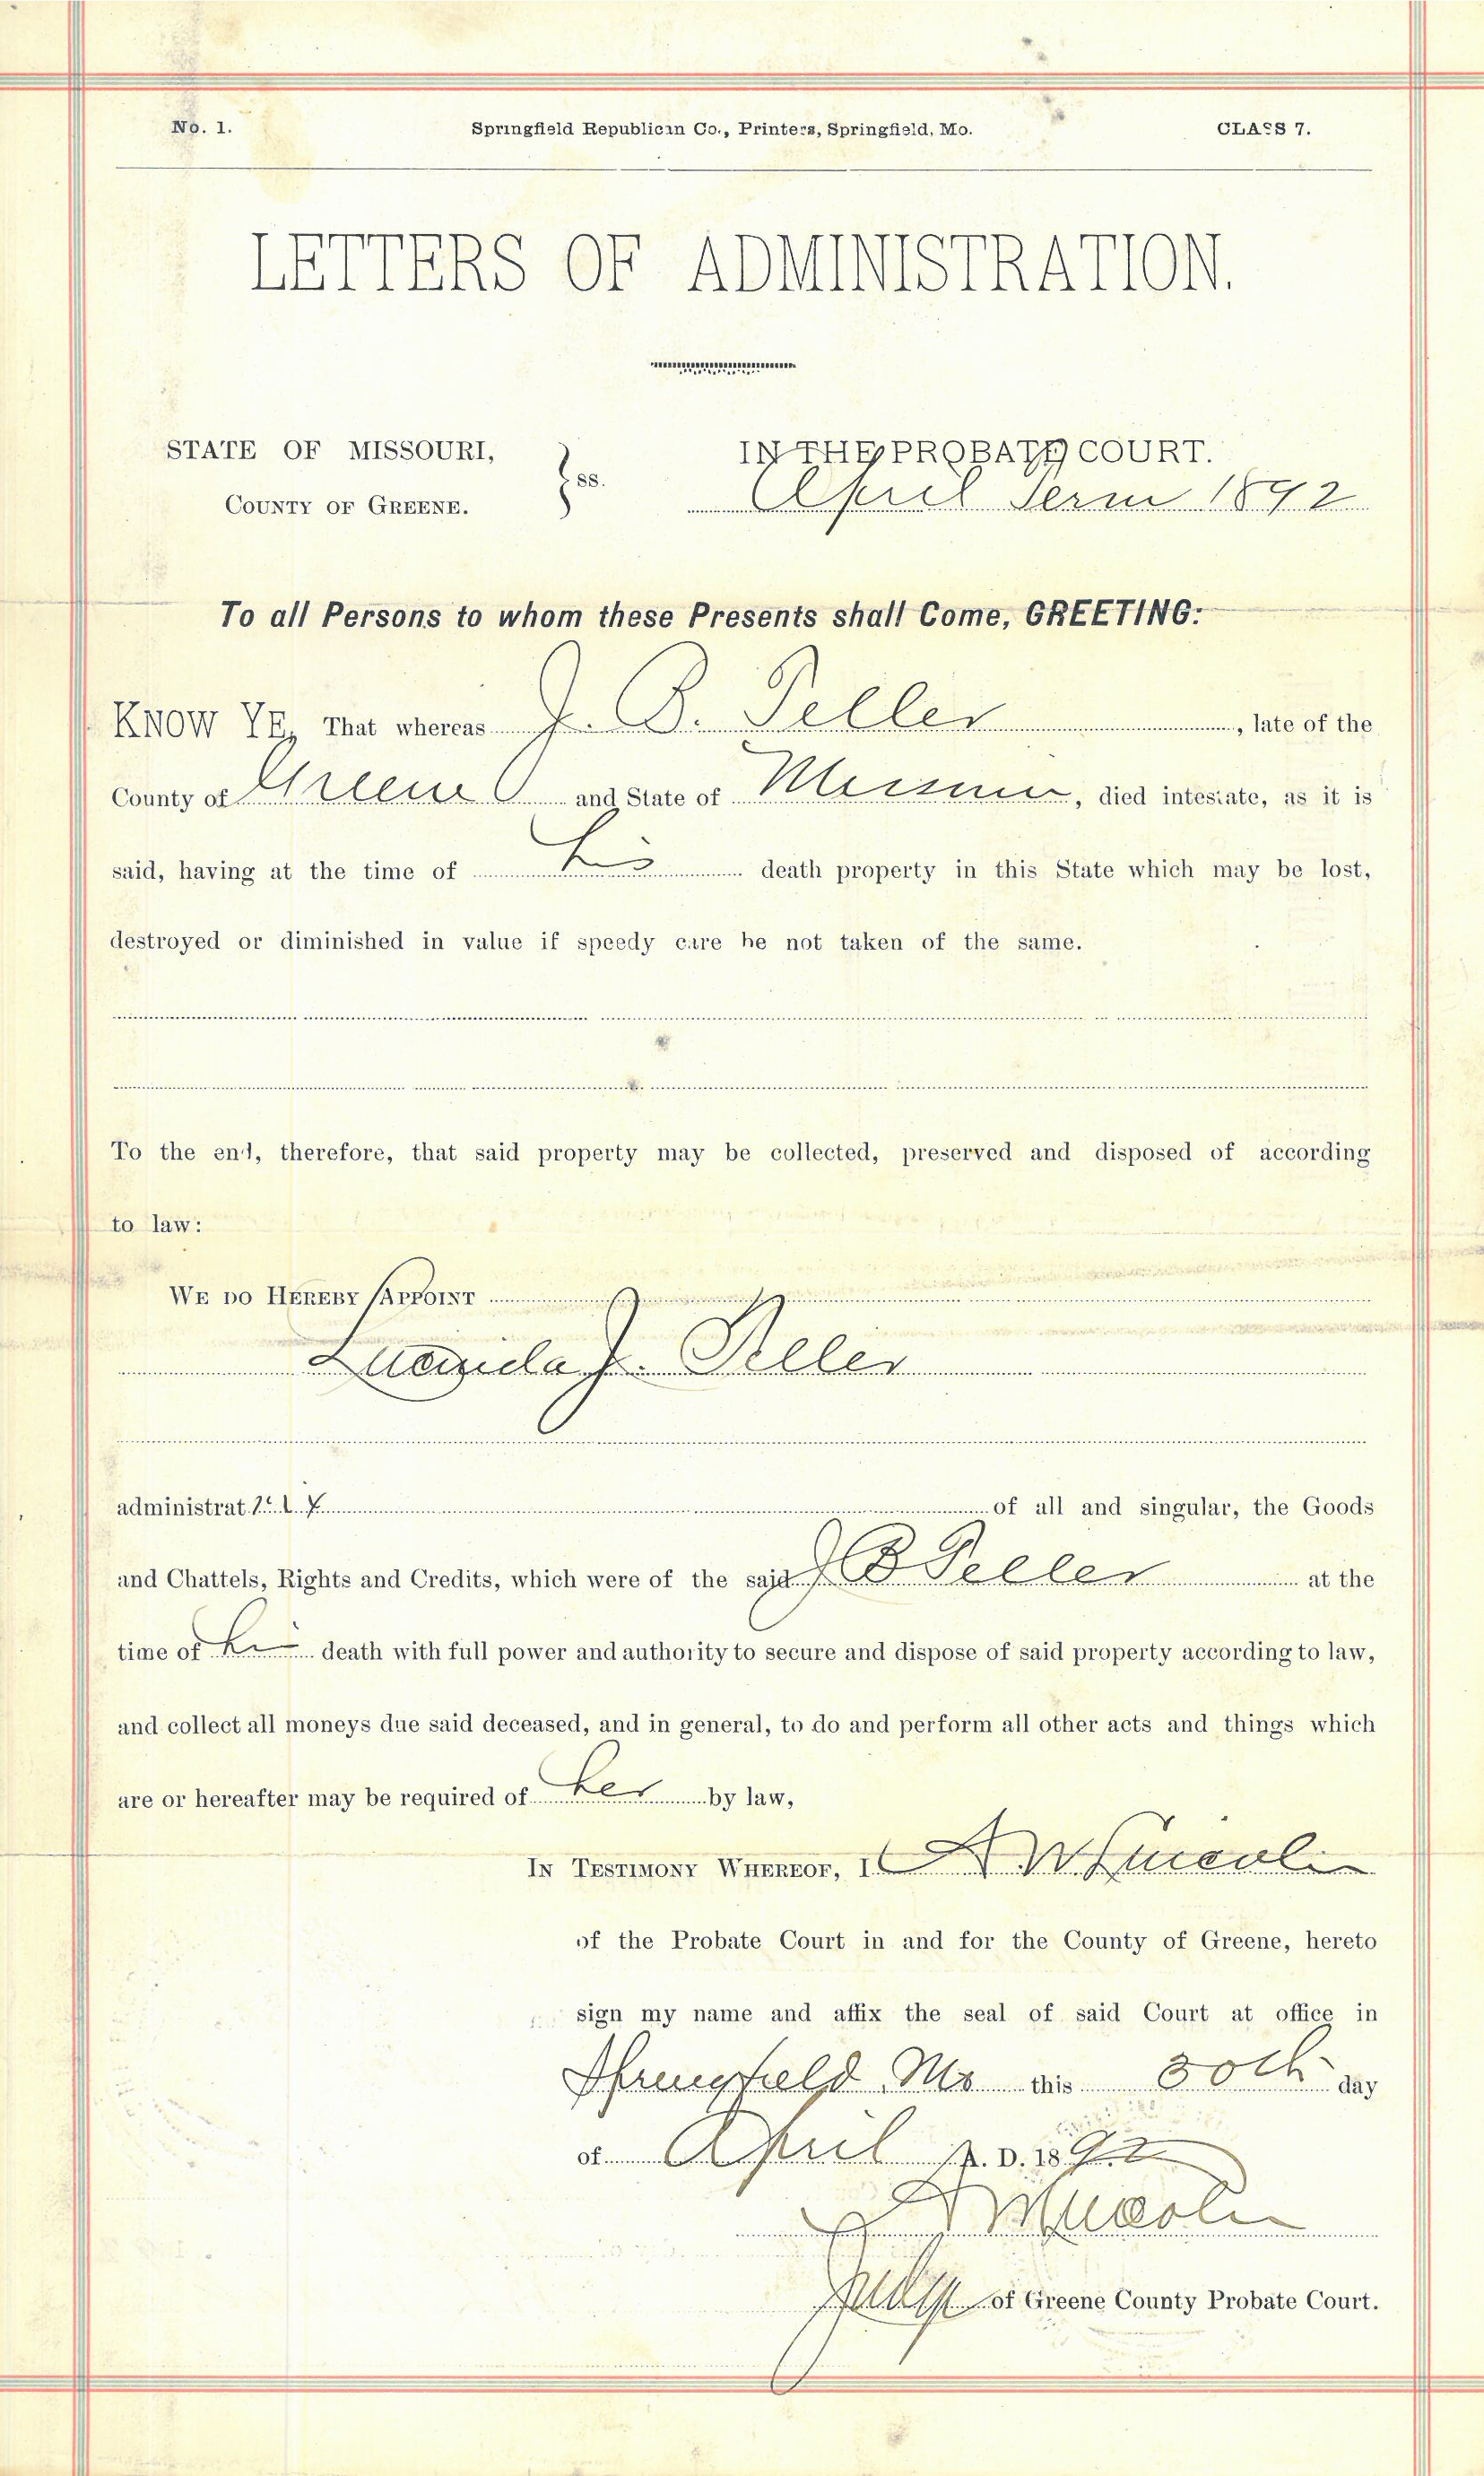 No. 1. Springfield Republican Co., Printers, Springfield, Mo. CLASS 7.
LETTERS OF ADMINISTRATION.
STATE OF MISSOURI,
COUNTY OF GREENE.
ss.
IN THE PROBATE COURT.
April Term 1892
To all Persons to whom these Presents shall Come, GREETING:
KNOW YE, That whereas J. B. Peller, late of the
County of Greene and State of Missouri, died intestate, as it is
said, having at the time of his death property in this State which may be lost,
destroyed or diminished in value if speedy care be not taken of the same.
To the end, therefore, that said property may be collected, preserved and disposed of according
to law:
WE DO HEREBY APPOINT
Lucinda J. Peller
administratrix of all and singular, the Goods
and Chattels, Rights and Credits, which were of the said J B Peller at the
time of his death with full power and authority to secure and dispose of said property according to law,
and collect all moneys due said deceased, and in general, to do and perform all other acts and things which
are or hereafter may be required of her by law,
IN TESTIMONY WHEREOF, I W Lincoln
of the Probate Court in and for the County of Greene, hereto
sign my name and affix the seal of said Court at office in
Springfield Mo this 30th day
of April A. D. 1892
Lincoln
Judge of Greene County Probate Court.